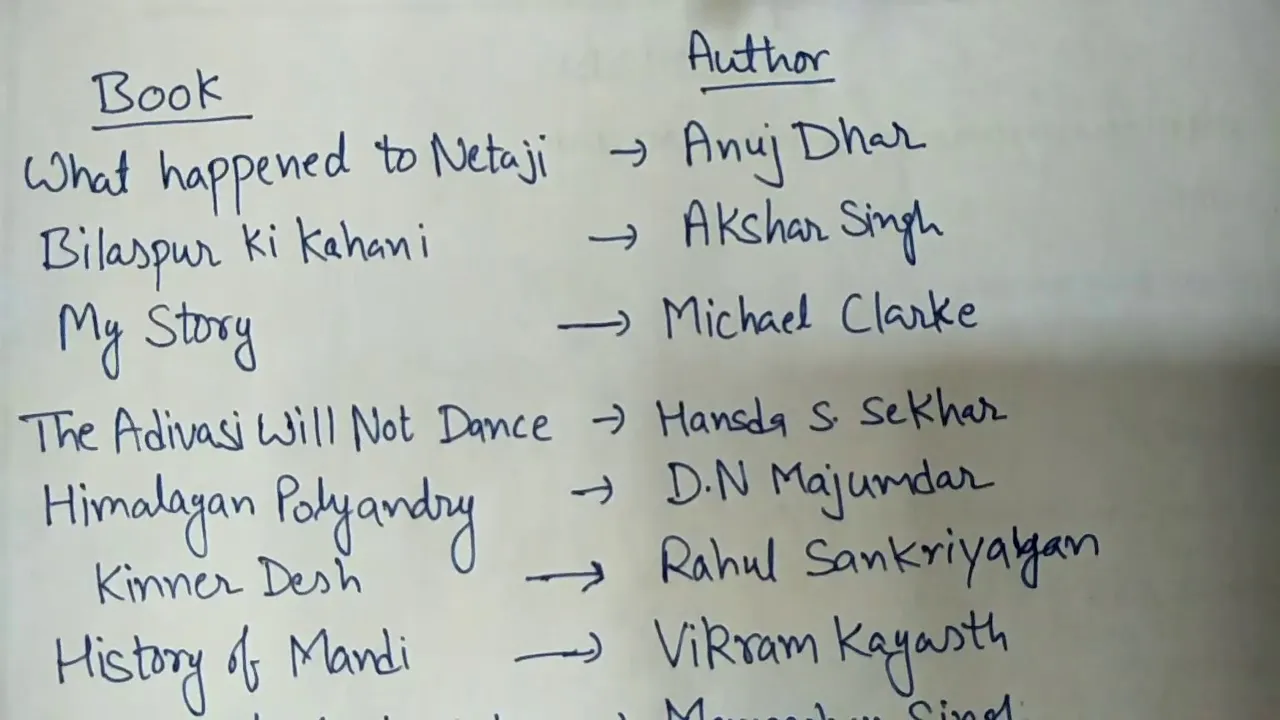 Book Author
What happened to Netaji → Anuj Dhar
Bilaspur ki kahani → Akshar Singh
My Story → Michael Clarke
The Adivasi Will Not Dance → Hansda S. Sekhar
Himalayan Polyandry → D.N Majumdar
Kinner Desh → Rahul Sankriyalyan
History of Mandi → Vikram Kayasth